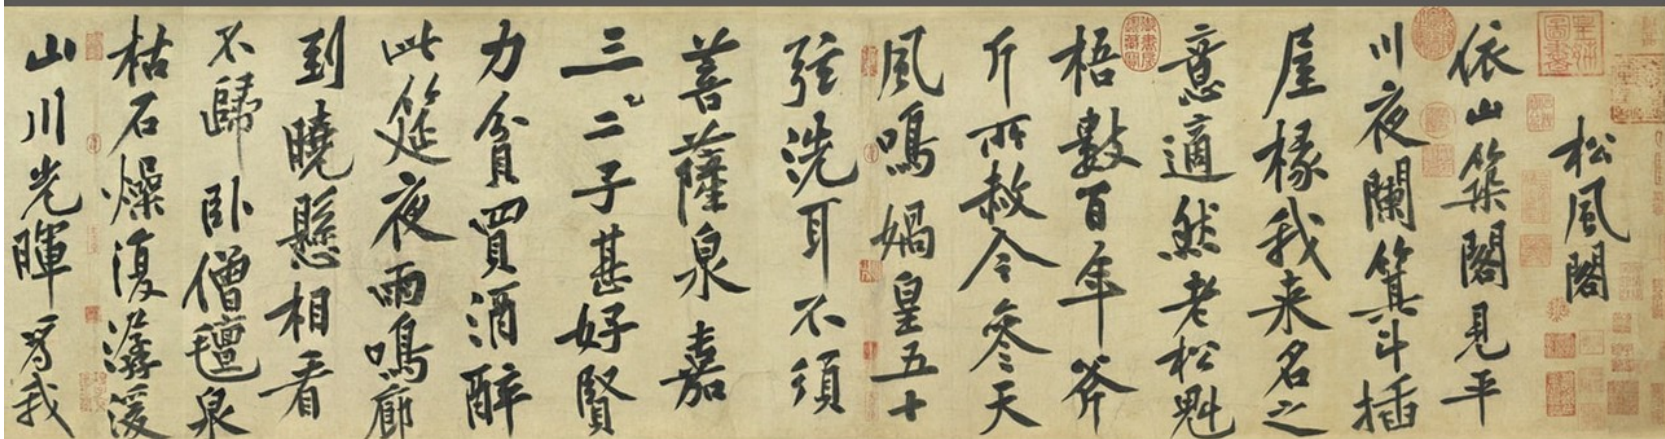 松風閣
依山築閣見平
川夜闌箕斗插
屋椽我来名之
意適然老松魁
梧數百年斧
斤所赦今參天
風鳴媧皇五十
弦洗耳不須
菩薩泉嘉
三二子甚好賢
力貧買酒醉
此筵夜雨鳴廊
到曉懸相看
不歸臥僧氊泉
枯石燥復潺湲
山川光暉爲我